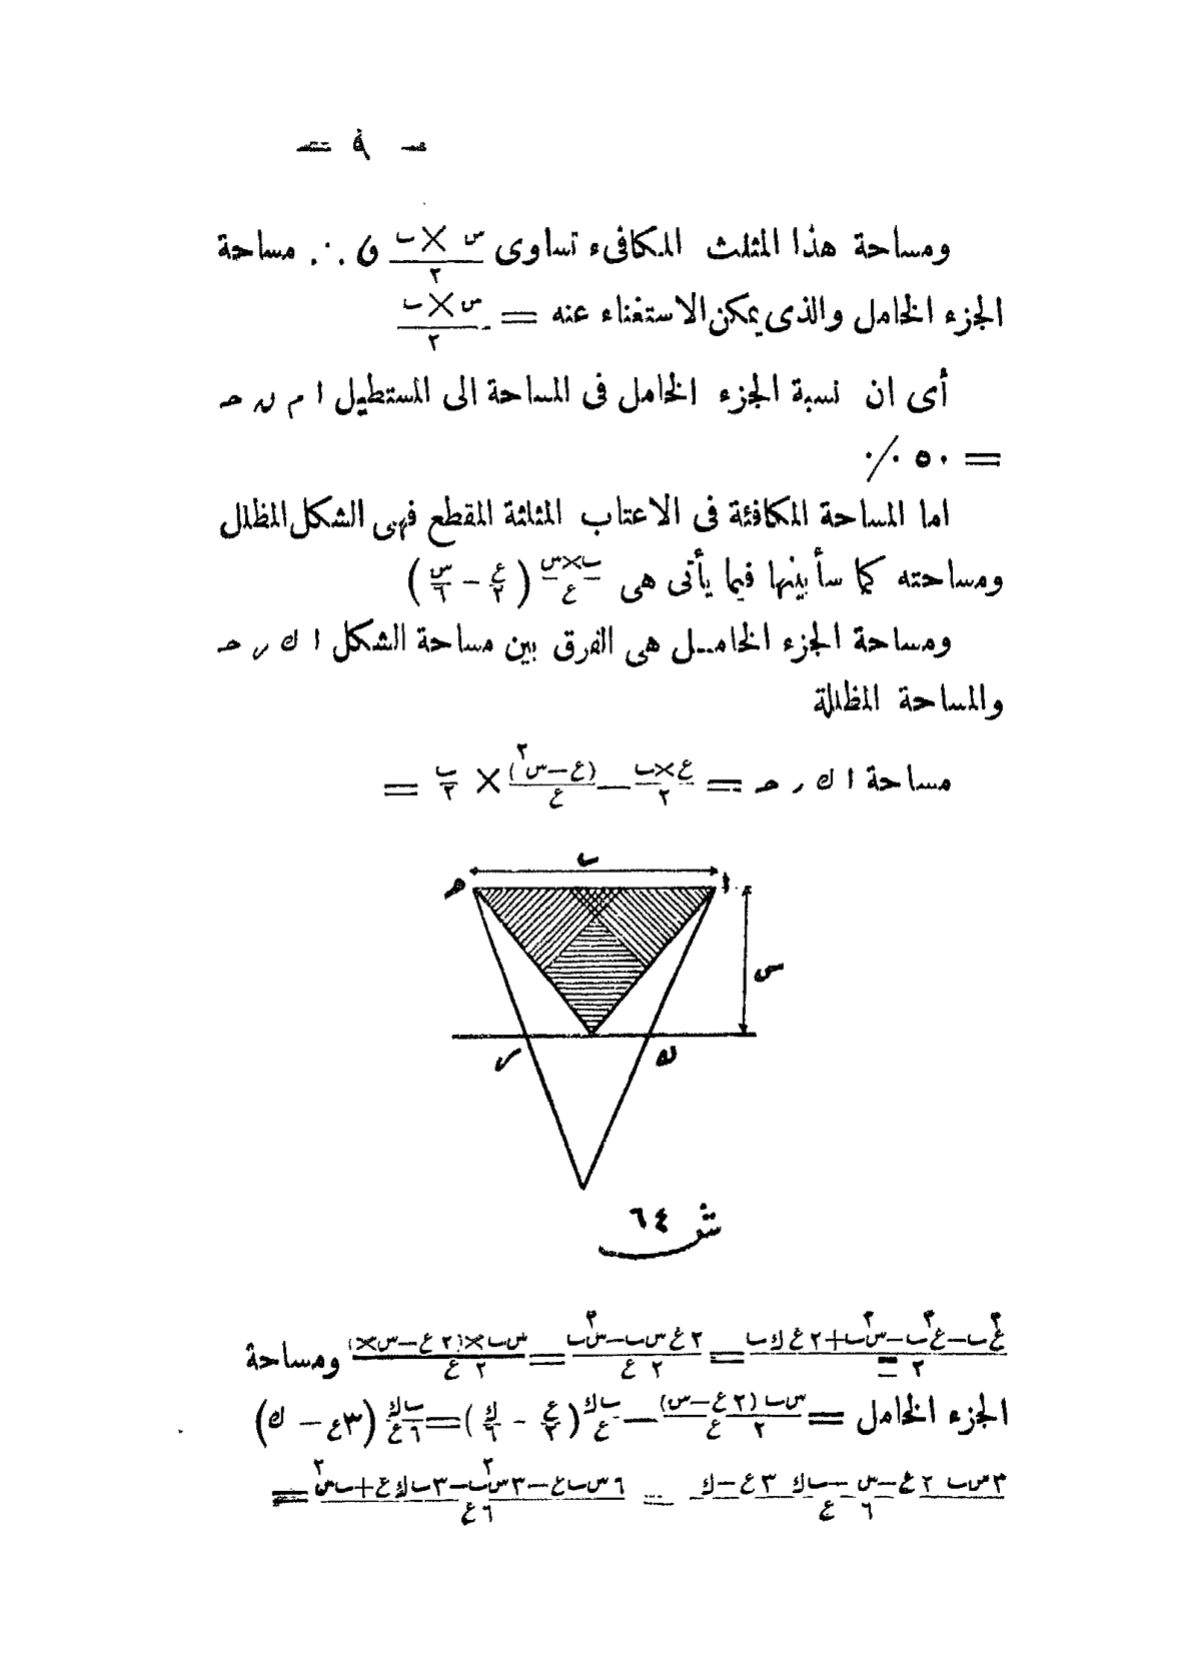 — ٩ —
ومساحة هذا المثلث المكافىء تساوى س × ب / ٢ ∴ مساحة
الجزء الخامل والذى يمكن الاستغناء عنه = س × ب / ٢
أى ان نسبة الجزء الخامل فى المساحة الى المستطيل ا م ن ح
= ٥٠ ٪
اما المساحة المكافئة فى الاعتاب المثلثة المقطع فهى الشكل المظلل
ومساحته كما سأبينها فيما يأتى هى ب×س / ع (ع / ٢ − س / ٦)
ومساحة الجزء الخامل هى الفرق بين مساحة الشكل ا ك ر ح
والمساحة المظللة
مساحة ا ك ر ح = ع×ب / ٢ − (ع−س)٢ / ع × ب / ٢ =
ب
ح ا
س
ر ك
ش ٦٤
ع٢ب−ع٢ب−س٢ب+٢ع ك ب / ٢ = ٢ع س ب−س٢ب / ٢ ع = س ب×(٢ع−س×) / ٢ ع ومساحة
الجزء الخامل = س ب (٢ع−س) / ٢ ع − ب ك / ع (ع / ٢ − ك / ٦) = ب ك / ٦ع (٣ع − ك)
٣س ب ٢ع−س−ب ك ٣ع−ك / ٦ ع = ٦س ب ع−٣س٢ب−٣ب ك ع+ب س٢ / ٦ع =